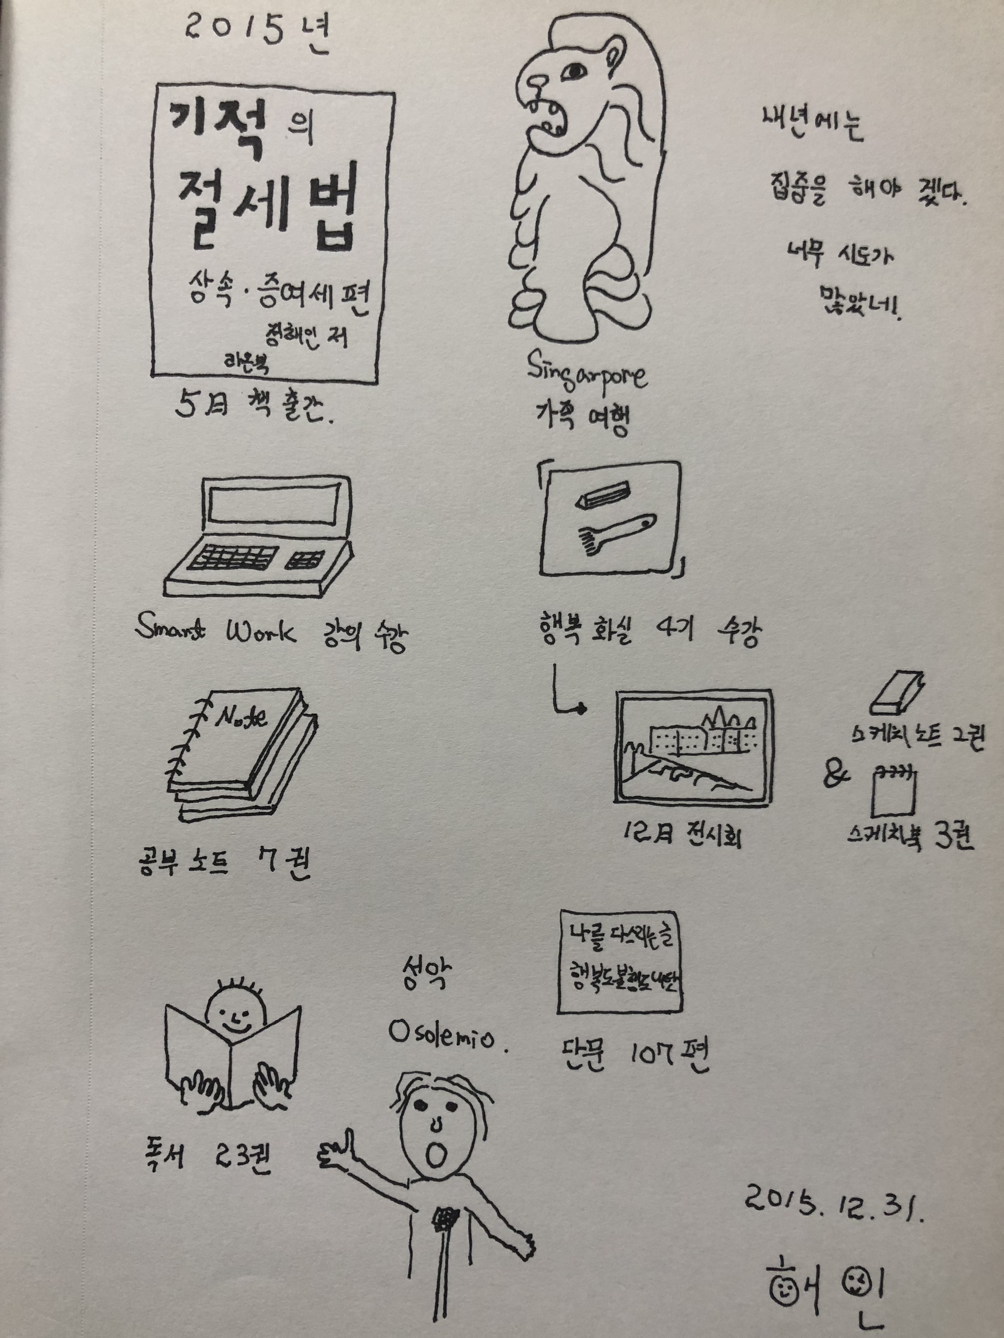 2015년
기적의
절세법
상속·증여세편
정해인 저
라온북
5月 책 출간.
Singarpore
가족 여행
내년에는
집중을 해야 겠다.
너무 시도가
많았네!
Smart Work 강의 수강
행복 화실 4기 수강
Note
공부 노트 7권
12月 전시회
스케치 노트 2권
&
스케치북 3권
성악
Osolemio.
나를 다스리는 글
행복도 불행도
단문 107편
독서 23권
2015.12.31.
해인